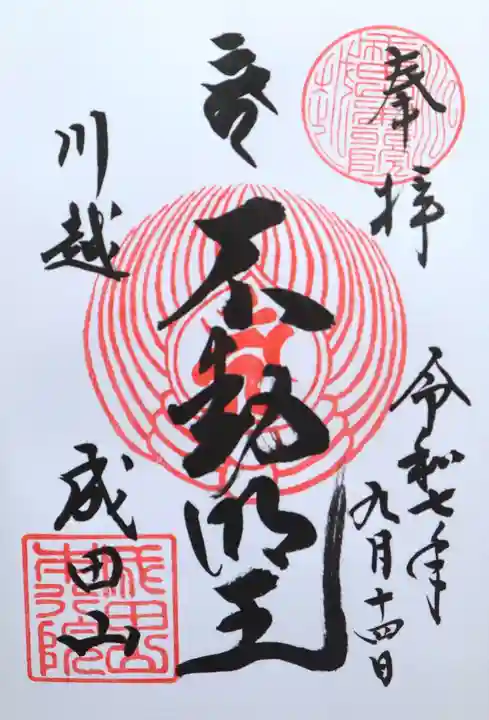 奉拝
令和七年
九月十四日
不動明王
川越
成田山